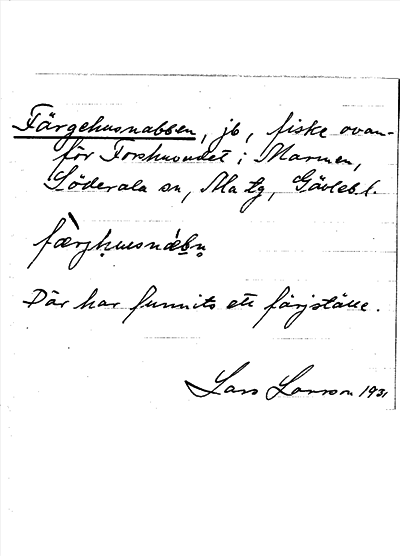 Färgehusnabben, jb, fiske ovan-
för Forshusundet i Marmen,
Söderala sn, Ala tg, Gävleb. l.
færjhusnabn
Där har funnits ett färjställe.
Lars Larsson 1931